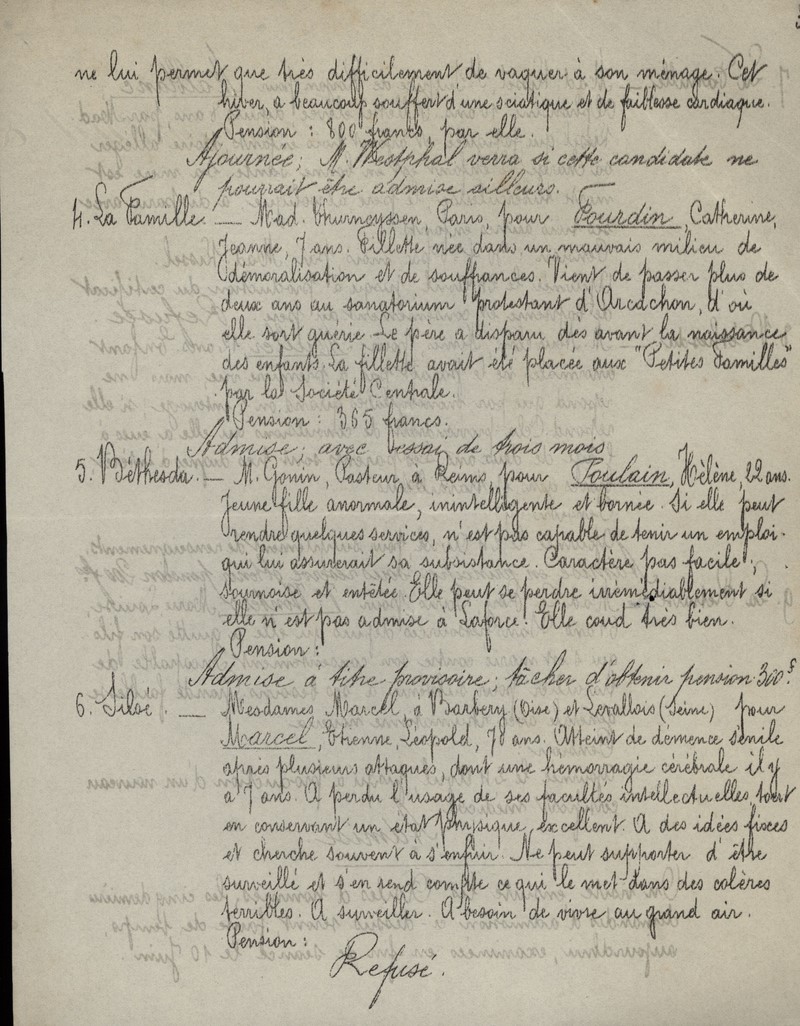 ne lui permet que très difficilement de vaquer à son ménage. Cet
hiver, a beaucoup souffert d'une sciatique et de faiblesse cardiaque.
Pension : 800 francs, par elle.
Ajournée ; M. Westphal verra si cette candidate ne
pourrait être admise ailleurs.
4. La Famille. — Mad. Thurneyssen, Paris, pour Fourdin, Catherine,
Jeanne, 7 ans. Fillette née dans un mauvais milieu de
démoralisation et de souffrances. Vient de passer plus de
deux ans au sanatorium protestant d'Arcachon, d'où
elle sort guérie. Le père a disparu dès avant la naissance
des enfants. La fillette avait été placée aux "Petites Familles"
par la Société Centrale.
Pension : 365 francs.
Admise ; avec essai de trois mois
5. Béthesda. — M. Gonin, Pasteur, à Reims, pour Poulain, Hélène, 22 ans.
Jeune fille anormale, inintelligente et bornée. Si elle peut
rendre quelques services, n'est pas capable de tenir un emploi
qui lui assurerait sa subsistance. Caractère pas facile ;
sournoise et entêtée. Elle peut se perdre irrémédiablement si
elle n'est pas admise à Laforce. Elle coud très bien.
Pension :
Admise à titre provisoire ; tâcher d'obtenir pension 300 f.
6. Siloé. — Mesdames Marcel, à Barbery (Oise) et Levallois (Seine) pour
Marcel, Etienne, Léopold, 78 ans. Atteint de démence sénile
après plusieurs attaques, dont une hémorragie cérébrale il y
a 7 ans. A perdu l'usage de ses facultés intellectuelles, tout
en conservant un état physique excellent. A des idées fixes
et cherche souvent à s'enfuir. Ne peut supporter d'être
surveillé et s'en rend compte ce qui le met dans des colères
terribles. A surveiller. A besoin de vivre au grand air.
Pension :
Refusé.